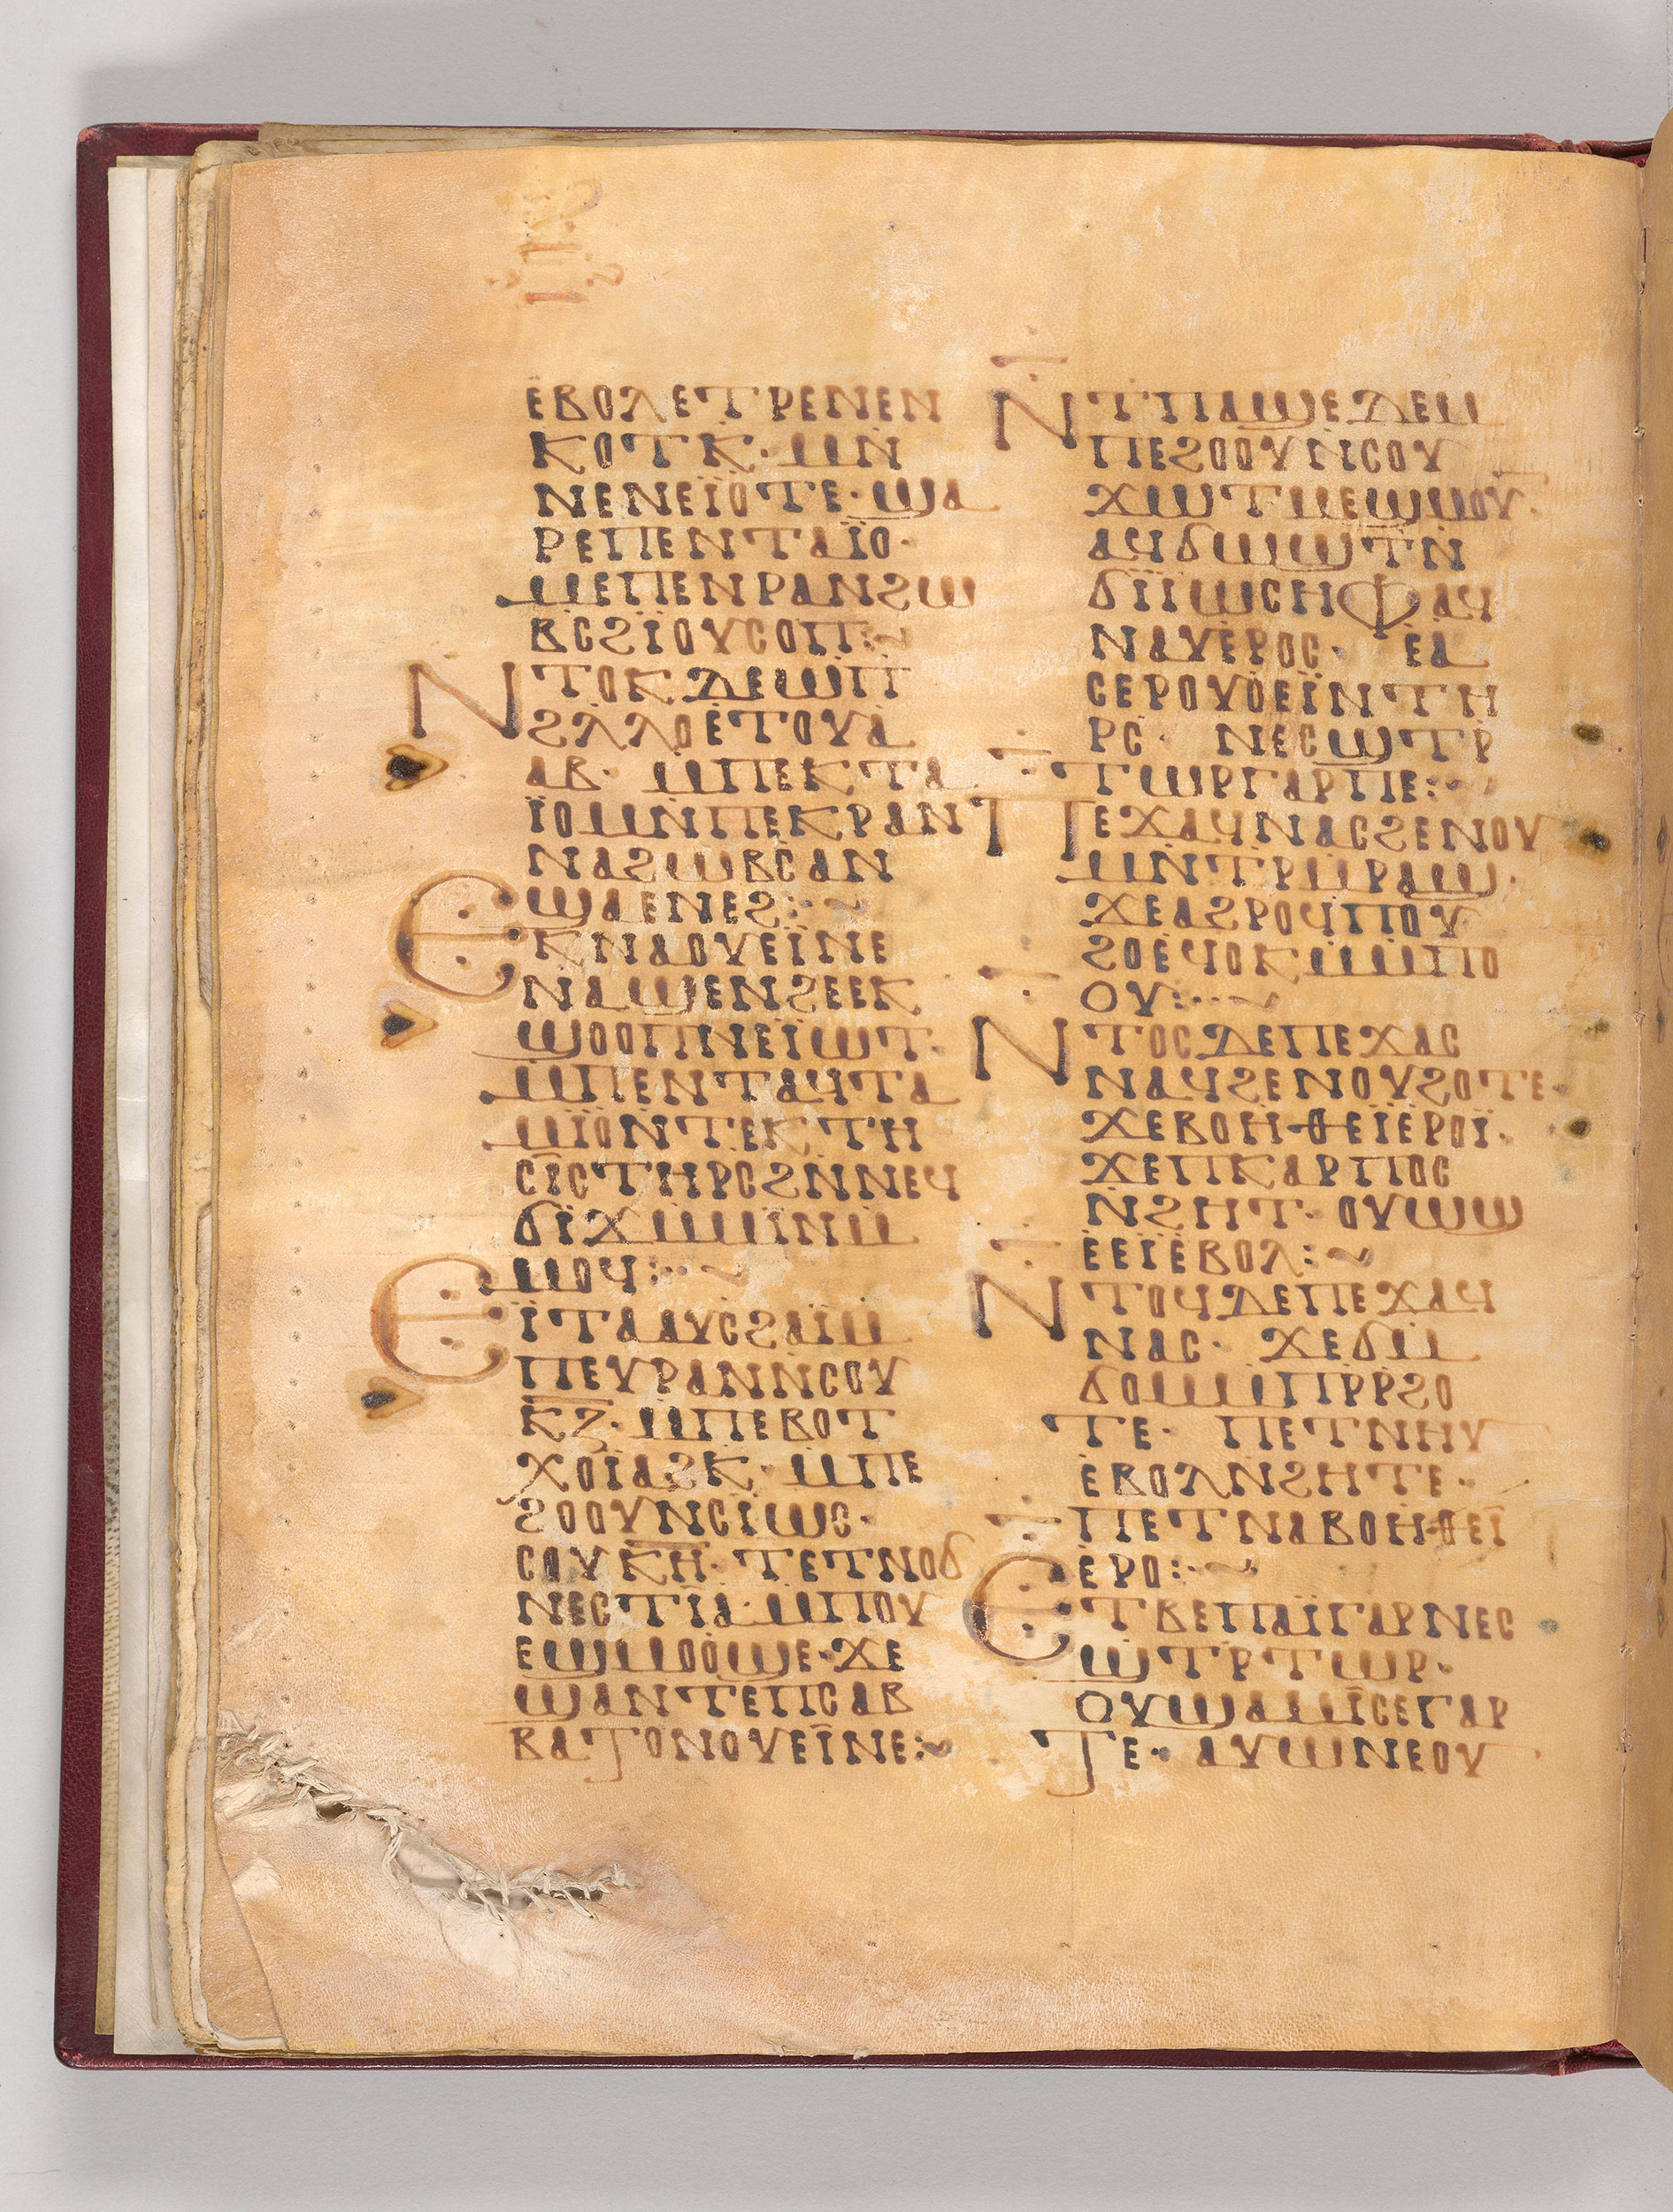 ⲉⲃⲟⲗⲉⲧⲣⲉⲛⲉⲛ
ⲕⲟⲧⲕ̇· ⲙⲛ̇
ⲛⲉⲛⲉⲓ̈ⲟⲧⲉ· ϣⲁ
ⲣⲉⲡⲉⲛⲧⲁⲓ̈ⲟ·
ⲙⲉⲡⲉⲛⲣⲁⲛϩⲱ
ⲃ̇ⲥϩⲓ̈ⲟⲩⲥⲟⲡ:~
ⲛⲧⲟⲕⲇⲉⲱⲡ
ϩⲗ̇ⲗⲟⲉ̇ⲧⲟⲩⲁ̇
ⲁⲃ· ⲙ̇ⲡⲉⲕⲧⲁ
ⲓ̈ⲟⲙⲛ̇ⲡⲉⲕⲣⲁⲛ
ⲛⲁϩⲱⲃ̇ⲥⲁⲛ
ϣⲁⲉⲛⲉϩ:·~
ⲉⲕⲛⲁⲟⲩⲉⲓ̈ⲛⲉ
ⲛⲁϣⲉⲛϩⲉⲉⲕ
ϣⲟⲟⲡⲛⲉⲓ̈ⲱⲧ·
ⲙ̇ⲡⲉⲛⲧⲁϥⲧⲁ
ⲙⲓ̈ⲟⲛ̇ⲧⲉⲕⲧⲏ
ⲥⲓ̈ⲥⲧⲏⲣⲥϩⲛ̇ⲛⲉϥ
ϭⲓ̈ϫⲙ̇ⲙⲓ̈ⲛⲙ̇
ⲙⲟϥ:·~
ⲉⲓ̈ⲧⲁⲁⲩⲥϩⲁⲓ̈ⲙ̇
ⲡⲉⲩⲣⲁⲛⲛ̇ⲥⲟⲩ
ⲕⲍ̅· ⲙ̇ⲡⲉⲃⲟⲧ
ⲭⲟⲓ̈ⲁϩⲕ· ⲙ̇ⲡⲉ
ϩⲟⲟⲩⲛ̇ⲥⲓ̈ⲱⲥ·
ⲥⲟⲩⲕ̅ⲏ̅· ⲧⲉⲧⲛⲟϭ
ⲛⲉⲥⲧⲓ̈ⲁ· ⲙ̇ⲡⲟⲩ
ⲉϣⲙⲟⲟϣⲉ· ϫⲉ
ϣⲁⲛⲧⲉⲡⲥⲁⲃ
ⲃⲁⲧⲟⲛⲟⲩⲉⲓ̈ⲛⲉ:~
ⲛ̇ⲧⲡⲁϣⲉⲇⲉⲙ
ⲡⲉϩⲟⲟⲩⲛ̇ⲥⲟⲩ
ϫⲱⲧⲙⲉϣⲙⲟⲩ·
ⲁϥϭⲱϣⲧⲛ̇
ϭⲓ̈ⲓ̈ⲱⲥⲏⲫⲁϥ
ⲛⲁⲩⲉ̇ⲣⲟⲥ· ⲉ̇ⲁ
ⲥⲉⲣⲟⲩⲟ̇ⲉⲓ̈ⲛⲧⲏ
ⲣⲥ̇· ⲛⲉⲥϣⲧⲣ̇
ⲧⲱⲣⲅⲁⲣⲡⲉ:·~
ⲡⲉϫⲁϥⲛⲁⲥϩⲉⲛⲟⲩ
ⲙⲛ̇ⲧⲣⲙ̇ⲣⲁϣ·
ϫⲉⲁϩⲣⲟϥⲡⲟⲩ
ϩⲟⲉ̇ϥⲟⲕⲙ̇ⲙ̇ⲡⲟ
ⲟⲩ:··~
ⲛⲧⲟⲥⲇⲉⲡⲉϫⲁⲥ
ⲛⲁϥϩⲉⲛⲟⲩϩⲟⲧⲉ·
ϫⲉⲃⲟⲏ̇ⲑⲉⲓ̈ⲉ̇ⲣⲟⲓ̈·
ϫⲉⲡⲕⲁⲣⲡⲟⲥ
ⲛ̇ϩⲏⲧ· ⲟⲩⲱϣ
ⲉ̇ⲉⲓ̈ⲉ̇ⲃⲟⲗ:~
ⲛⲧⲟϥⲇⲉⲡⲉϫⲁϥ
ⲛⲁⲥ· ϫⲉϭⲙ̇
ϭⲟⲙⲙ̇ⲡⲣ̇ⲣ̇ϩⲟ
ⲧⲉ· ⲡⲉⲧⲛⲏⲩ
ⲉ̇ⲃⲟⲗⲛ̇ϩⲏⲧⲉ·
ⲡⲉⲧⲛⲁⲃⲟⲏ̇ⲑⲉⲓ̈
ⲉ̇ⲣⲟ:·~
ⲉⲧⲃⲉⲡⲁⲓ̈ⲅⲁⲣⲛⲉⲥ
ϣⲧⲣ̇ⲧⲱⲣ·
ⲟⲩϣⲁⲙⲓ̈ⲥⲉⲅⲁⲣ
ⲧⲉ· ⲁⲩⲱⲛⲉⲟⲩ